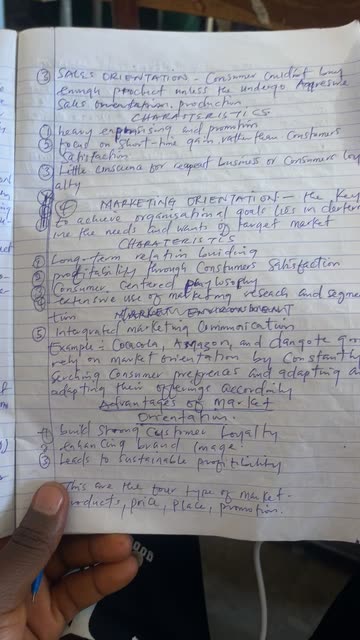 ③ SALES ORIENTATION - Consumer couldnt buy
enough product unless the undergo Aggresive
Sales orientation. production
CHARATERISTICS
① heavy and promotion
② Focus on Short-time gain rather than Constumers
Satisfaction
③ Little for repeat business or Consumers loy
alty
④ MARKETING ORIENTATION - the key
to achieve organisational goals lies in determ
ine the needs and wants of target market
CHARATERISTICS
① Long-term relatin building
② profitability through Constumers Satisfaction
③ Consumer Centered philosophy
④ extensive use of marketing reseach and segme
tion MARKET ENVIRONMENT
⑤ Intergrated marketing Communication
Example: Cocacola, Amazon, and dangote gro
rely on market orientation by Constantly
Serching Consumer preferences and adapting a
adapting their offerings accordinly
Advantages of Market
Orientation.
① build Strong Customer loyalty
② enhancing brand image.
③ Leads to sustainable profitibility
This are the four type of market.
products, price, place, promotion.